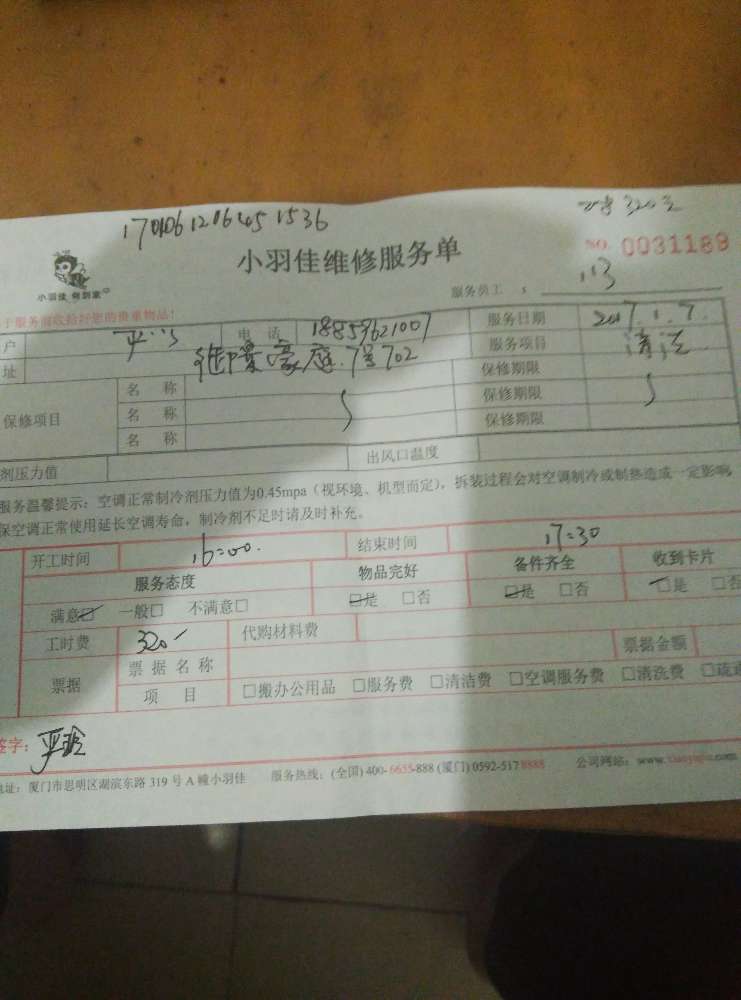 170106120645 1536
320元
小羽佳维修服务单
NO. 0031189
小羽佳 到家
服务员工：
服务前收拾好您的贵重物品！
户 电话 18859621007 服务日期 2017.1.7.
址 豪庭.7号702 服务项目 清洗
保修项目 名称 保修期限
名称 保修期限
名称 保修期限
剂压力值 出风口温度
服务温馨提示：空调正常制冷剂压力值为0.45mpa（视环境、机型而定），拆装过程会对空调制冷或制热造成一定影响，
保空调正常使用延长空调寿命，制冷剂不足时请及时补充。
开工时间 16:00. 结束时间 17:30
服务态度 物品完好 备件齐全 收到卡片
满意☑ 一般□ 不满意□ ☑是 □否 ☑是 □否 ☑是 □否
工时费 320 代购材料费 票据金额
票据 票据名称
项目 □搬办公用品 □服务费 □清洁费 □空调服务费 □清洗费 □疏通
签字： 严玲
地址：厦门市思明区湖滨东路319号A幢小羽佳 服务热线：(全国) 400-6655-888 (厦门) 0592-5178888 公司网站：www.